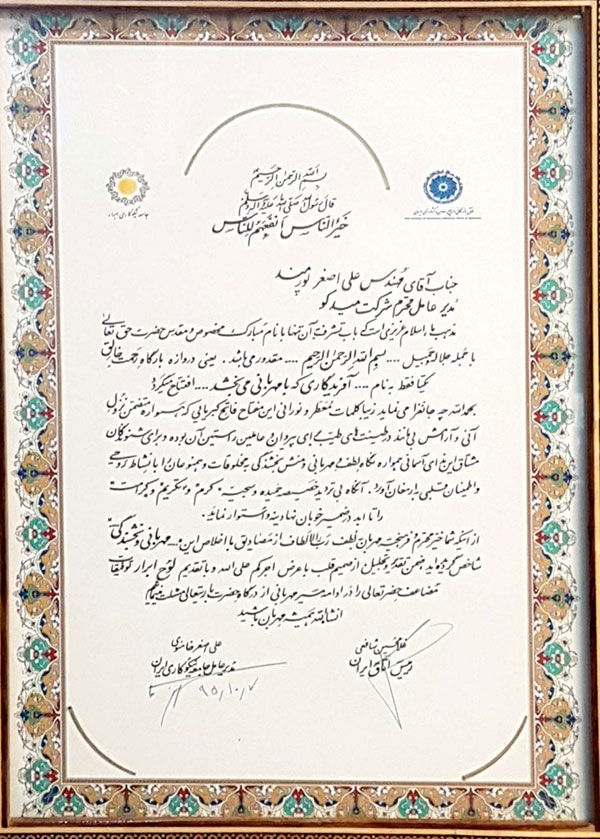 بسم الله الرحمن الرحیم
قال رسول الله صلی الله علیه و آله و سلم
خیر الناس انفعهم للناس
جامعه نیکوکاری ابرار
جناب آقای مهندس علی اصغر پورمند
مدیر عامل محترم شرکت میدکو
مذهب ما، اسلام عزیزی است که باب تشرف به آن تنها با نام مبارک مخصوص و مقدس حضرت حق تعالی
با جمله جلاله جمیل .... بسم الله الرحمن الرحیم .... مقدور می باشد . یعنی دروازه بارگاه رحمت خالق
یکتا فقط به نام .... آفریدگاری که با مهربانی می بخشد .... افتتاح میگردد
بحمدالله چه جانفزا می نماید زیبا کلمات معطر و نورانی این مفتاح فاتح کبریایی که همواره متضمن نزول
آنی و آرامش بی مانند در طینت های طیب برای پیروان و عاملین راستین آن بوده و برای شنوندگان
مشتاق این ندای آسمانی همواره نگاه لطف و مهربانی و منش بخشندگی به مخلوقات و همنوعان را با نشاط روحی
و اطمینان قلبی به ارمغان آورد. آنگاه بی تردید خصیصه حمیده و سجیت کرم و تکریم و کرامت
را تا ابد در ضمیر خوبان نهادینه و استوار نماید.
از اینکه شما خیر محترم فرصت مهربان لطف رب الالطاف از مصادیق با اخلاص این ... مهربانی و بخشندگی ...
شاخص گردیده اید ضمن تقدیر و تجلیل از صمیم قلب با عرض اجرکم علی الله و با تقدیم لوح ابرار توفیقات
مضاعف حضرتعالی را در ادامه مسیر مهربانی از درگاه حضرت باریتعالی مسئلت مینماییم
انشاءالله همیشه مهربان باشید
غلامحسین شافعی
رئیس اتاق ایران
علی اصغر
مدیر عامل جامعه نیکوکاری ابرار
۹۵/۱۰/۷